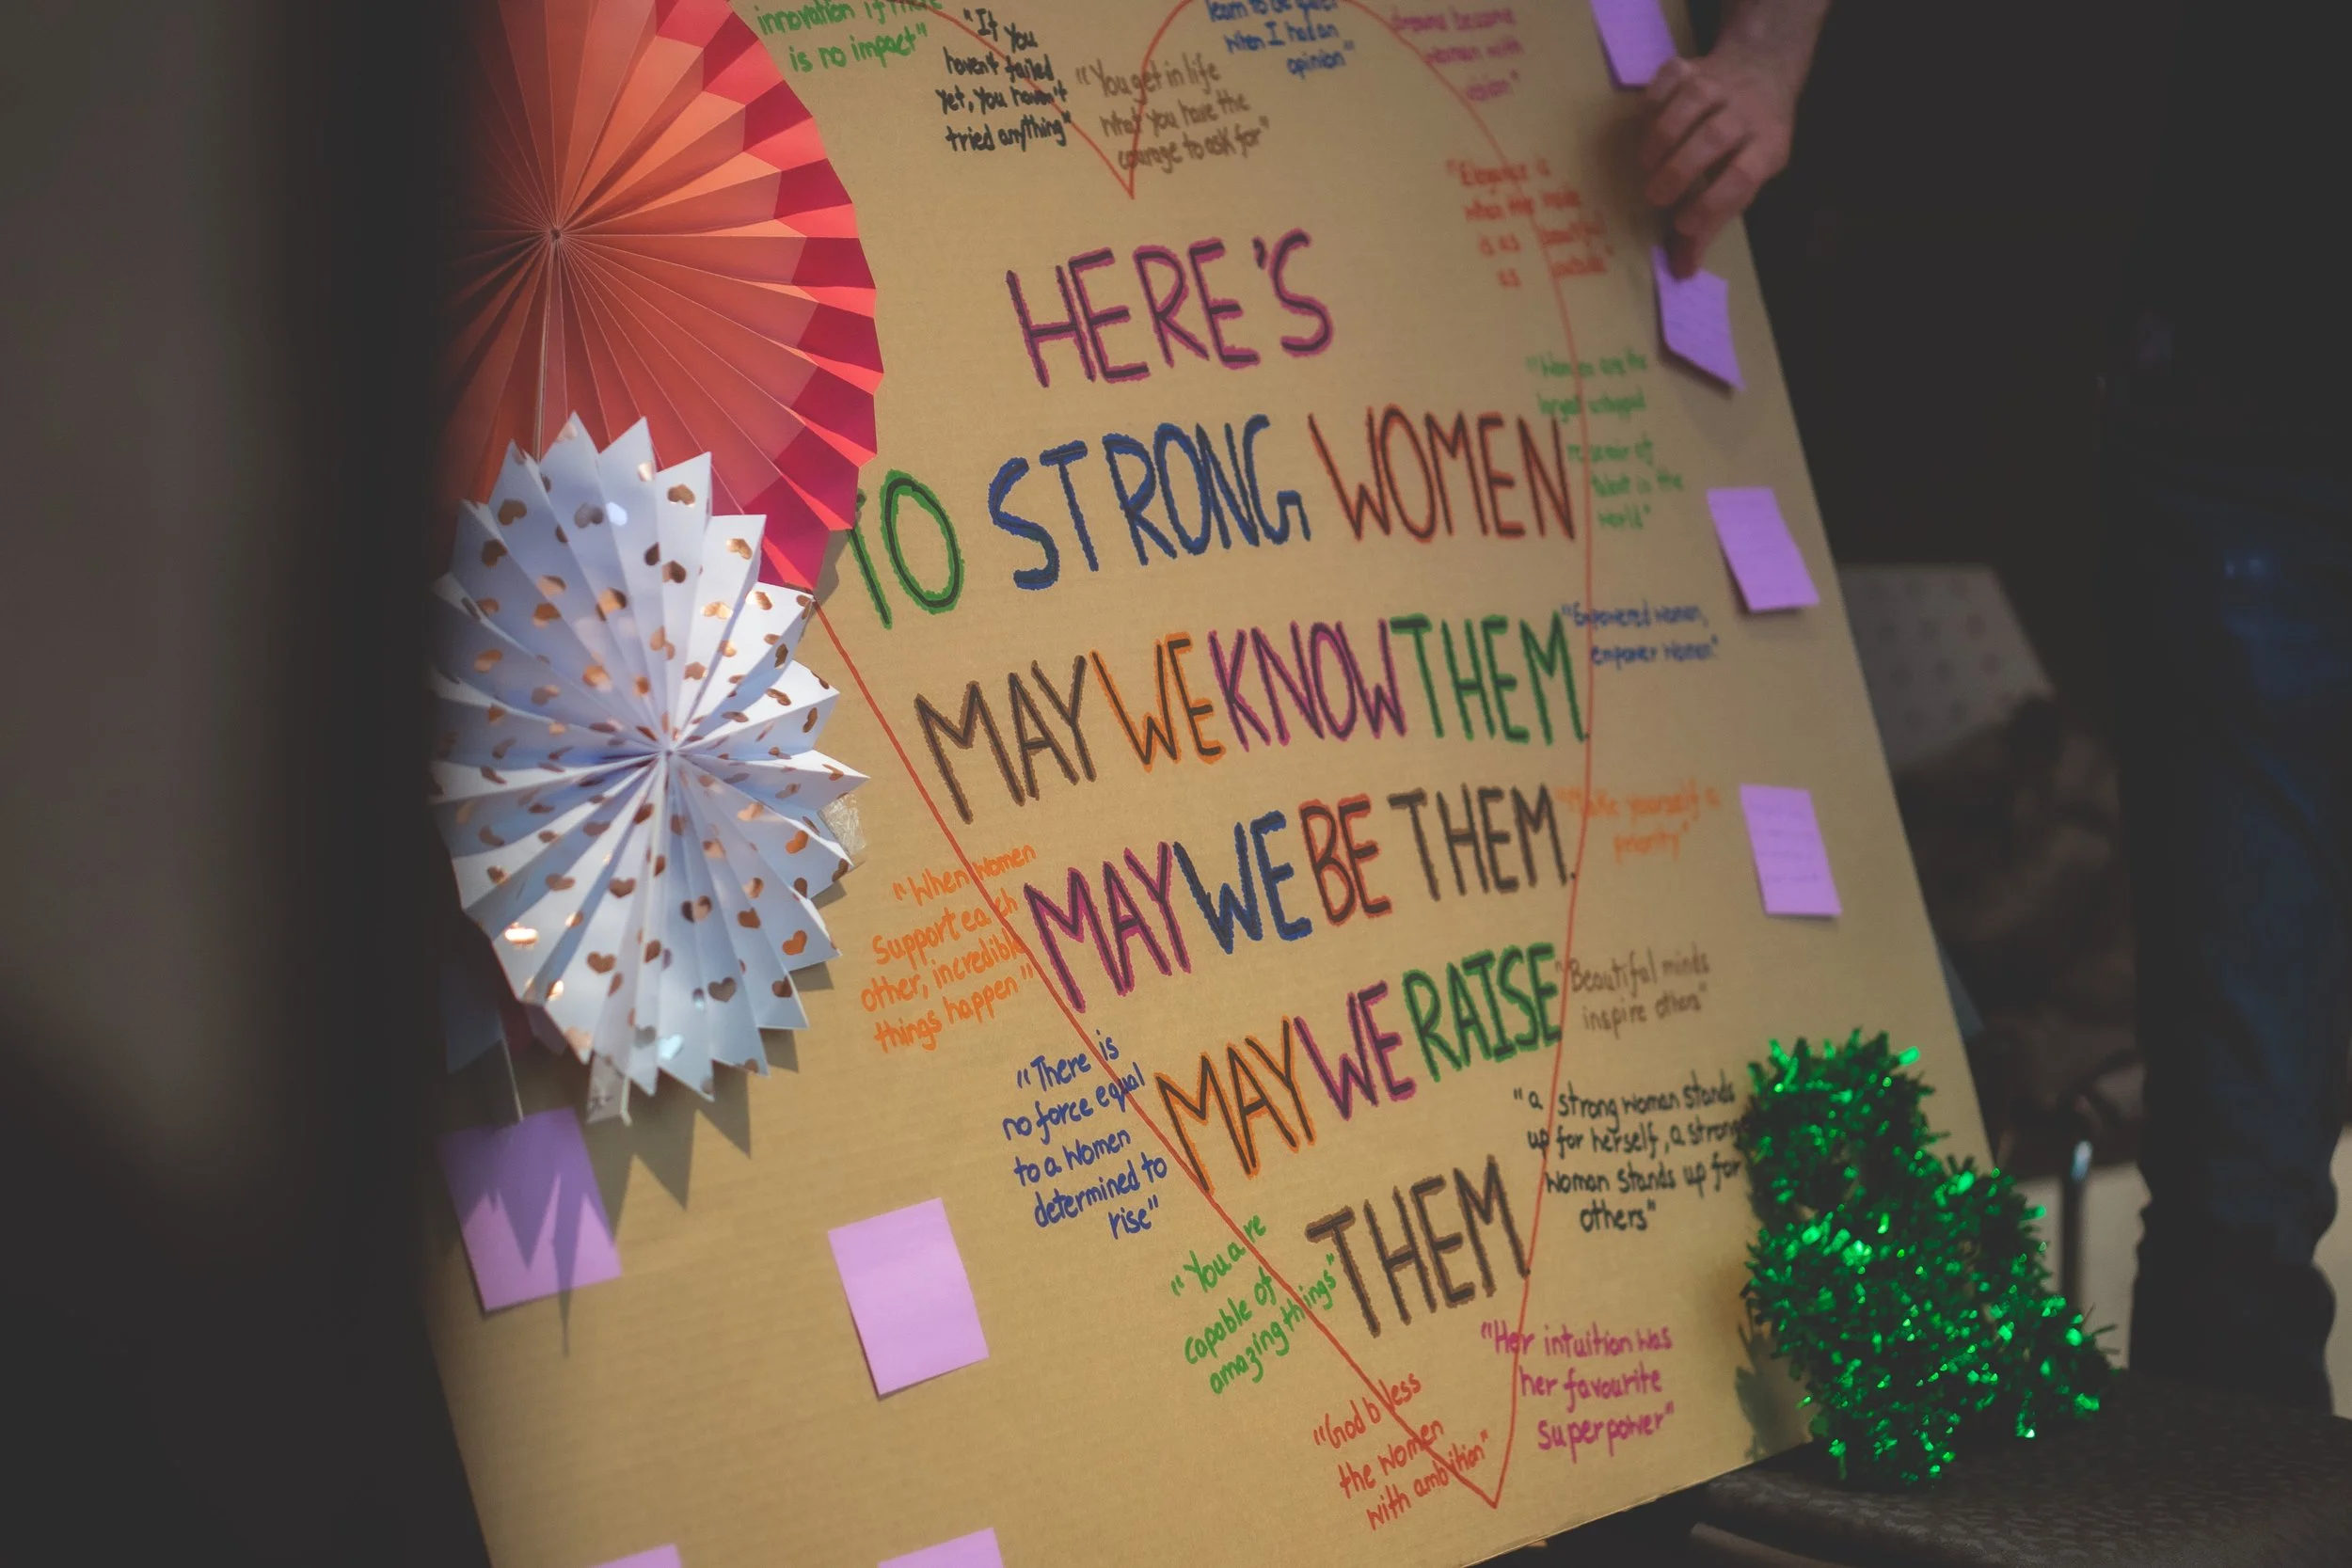 innovation if there
is no impact"
"If you
haven't failed
yet, you haven't
tried anything"
"You get in life
what you have the
courage to ask for"
learn to be quiet
when I had an
opinion"
women with
vision"
"Elegance is
when the inside
is as beautiful
as outside"
HERE'S
TO STRONG WOMEN
MAY WE KNOW THEM.
MAY WE BE THEM.
MAY WE RAISE
THEM
"Women are the
largest untapped
reservoir of
talent in the
world"
"Empowered women,
empower women."
"Make yourself a
priority"
"Beautiful minds
inspire others"
"a strong woman stands
up for herself, a strong
woman stands up for
others"
"When women
support each
other, incredible
things happen"
"There is
no force equal
to a women
determined to
rise"
"You are
capable of
amazing things"
"God bless
the women
with ambition"
"Her intuition was
her favourite
superpower"